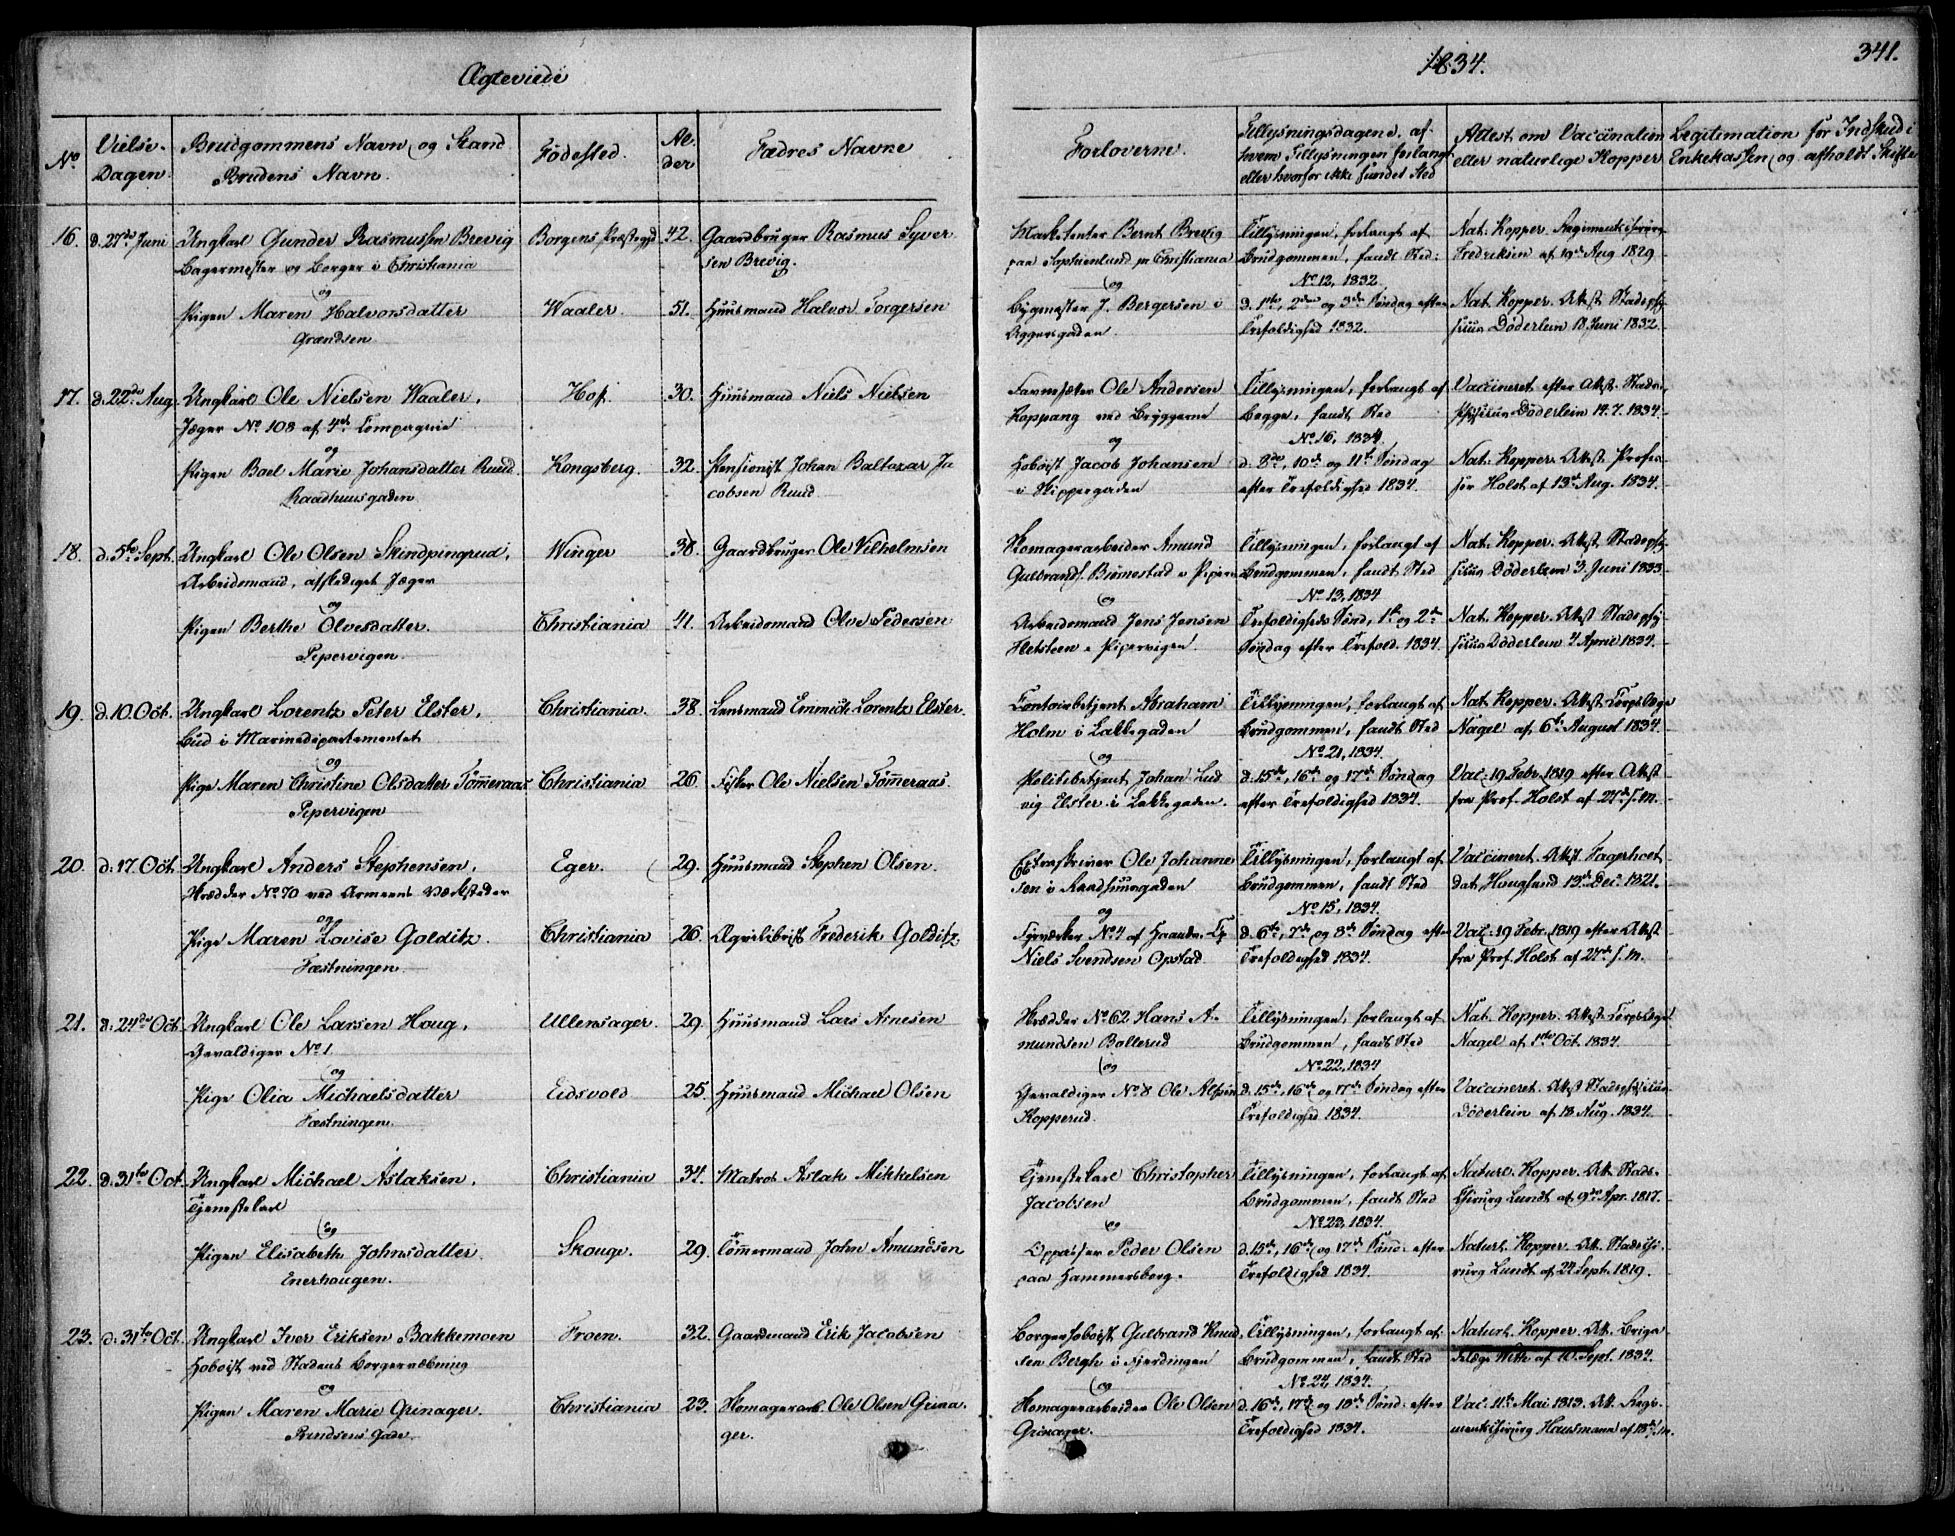 Ægteviede
1834.
341.
No
Vielse-
Dagen.
Brudgommens Navn og Stand
Brudens Navn.
Fødested.
Al-
der
Fædres Navne
Forloverne.
Tillysningsdagene, af
hvem Tillysningen forlangt
eller hvorfor ikke fundet Sted
Attest om Vaccination
eller naturlige Kopper
Legitimation for Indskud i
Enkekassen og afholdt Skifte
16. d. 27de Juni Ungkarl Gunder Rasmussen Brevig Borgens Præstegjd 42. Gaardbruger Rasmus Syver
Bagermester og Borger i Christiania sen Brevig.
og
Pigen Maren Halvorsdatter Waaler. 51. Huusmand Halvor Torgersen
Grændsen
Marketenter Bernt Brevig Tillysningen, forlangt af Nat. Kopper. Regimentschirurg
paa Sophienlund pr Christiania Brudgommen, fandt Sted: Fredriksen af 19de Aug 1829
og No 12, 1832
Bygmester J. Bergersen i d. 1ste, 2den og 3die Søndag efter Nat. Kopper. Attest Stadsphy
Aggersgaden. Trefoldighed 1832. sicus Døderlein 18 Juni 1832.
17. d. 22de Aug. Ungkarl Ole Nielsen Waaler, Hof. 30. Huusmand Niels Nielsen
Jæger No 108 af 4de Compagnie
og
Pigen Boel Marie Johansdatter Ruud. Kongsberg. 32. Pensionist Johan Baltazar Ja
Raadhuusgaden cobsen Ruud
Favnesætter Ole Andersen Tillysningen, forlangt af Vaccineret efter Attest Stads-
Koppang ved Bryggerne Begge, fandt Sted physicus Døderlein 14. 7. 1834.
og No 16, 1834.
Hoboist Jacob Johansen d. 8de, 10de og 11te Søndag Nat. Kopper. Attest Profes
i Skippergaden efter Trefoldighed 1834. sor Holst af 13de Aug. 1834.
18. d. 5te Sept. Ungkarl Ole Olsen Skindpingrud, Winger 38. Gaardbruger Ole Vilhelmsen
Arbeidsmand, afskediget Jæger
og
Pigen Berthe Olvesdatter. Christiania 41. Arbeidsmand Olve Pedersen
Pipervigen.
Skomagerarbeider Amund Tillysningen, forlangt af Nat. Kopper. Attest Stadsphy
Gulbrands. Biørnestad i Piperv Brudgommen, fandt Sted sicus Døderlein 3. Juni 1833
og No 13, 1834
Arbeidsmand Jens Jensen Trefoldigheds Sønd, 1ste og 2de Nat. Kopper. Attest Stadsphy
Helsteen i Pipervigen. Søndag efter Trefold. 1834. sicus Døderlein 4 April 1834.
19. d. 10 Oct. Ungkarl Lorentz Peter Elster, Christiania. 38. Lensmand Emmich Lorentz Elster.
Bud i Marinedepartementet
og
Pige Maren Christine Olsdatter Tømmeraas Christiania 26. Fisker Ole Nielsen Tømmeraas.
Pipervigen
Contoirbetjent Abraham Tillysningen, forlangt af Nat. Kopper. Attest Corpslæge
Holm i Lakkegaden Brudgommen, fandt Sted Nagel af 6te August 1834.
og No 21, 1834.
Politibetjent Johan Lud d. 15de, 16de og 17de Søndag Vac: 19 Febr. 1819 efter Attest
vig Elster i Lakkegaden. efter Trefoldighed 1834. fra Prof. Holst af 24de s. m.
20. d. 17. Oct. Ungkarl Anders Stephensen, Eger. 29. Huusmand Stephen Olsen.
Skrædder No 70 ved Armeens Værksteder
og
Pige Maren Lovise Golditz. Christiania 26. Æqvilibrist Frederik Golditz
Fæstningen
Extraskriver Ole Johanne Tillysningen, forlangt af Vaccineret. Attest
sen i Raadhuusgaden Brudgommen, fandt Sted Hougsund 13de Dec. 1821.
og No 15, 1834.
Fyrværker No 4 af d. 6te, 7de og 8de Søndag efter Vac: 19 Febr. 1819 efter Attest
Niels Svendsen Opstad Trefoldighed 1834. fra Prof. Holst af 27de s. m.
21. d. 24de Oct. Ungkarl Ole Larsen Houg, Ullensager. 29. Huusmand Lars Arnesen
Gevaldiger No 1.
og
Pige Olia Michaelsdatter Eidsvold 25. Huusmand Michael Olsen
Fæstningen.
Skrædder No 62 Hans A- Tillysningen, forlangt af Nat. Kopper. Attest Corpslæge
mundsen Bollerud Brudgommen, fandt Sted Nagel af 1ste Oct. 1834.
og No 22, 1834
Gevaldiger No 8 Ole d. 15de, 16de og 17de Søndag efter Vaccineret. Attest Stadsphysicus
Kopperud. Trefoldighed 1834. Døderlein af 18. Aug. 1834.
22. d. 31te Oct. Ungkarl Michael Aslaksen, Christiania 34. Matros Aslak Mikkelsen
Tjenestekarl
og
Pigen Elisabeth Johnsdatter. Skouge. 29. Tømmermand John Amundsen
Enerhaugen.
Tjenestekarl Christopher Tillysningen, forlangt af Naturl. Kopper. Att. Stads-
Jacobsen Brudgommen, fandt Sted Chirurg Lundt af 9de Apr. 1817.
og No 23, 1834.
Oppasser Peder Olsen d. 15de, 16de og 17de Sønd: efter Naturl. Kopper. Att. Stadschi
paa Hammersborg. Trefoldighed 1834. rurg Lundt af 24 Sept. 1819.
23. d. 31te Oct. Ungkarl Iver Eriksen Bakkemoen Froen. 32. Gaardmand Erik Jacobsen
Hoboist ved Stadens Borgervæbning
og
Pigen Maren Marie Grinager. Christiania 23. Skomagerarb. Ole Olsen Grina
Prindsens Gade. ger.
Borgerhoboist Gulbrand Knud Tillysningen, forlangt af Naturl. Kopper. Att. Briga
sen Bergh i Fjerdingen Brudgommen, fandt Sted delæge With af 10. Sept. 1834.
og No 24, 1834.
Skomagerarbeider Ole Olsen d. 16de, 17de og 18de Sønd: efter Vac. 11te Mai 1813. Att. Regi-
Grinager. Trefoldighed 1834. mentschirurg Hansmann af 18de s. m.